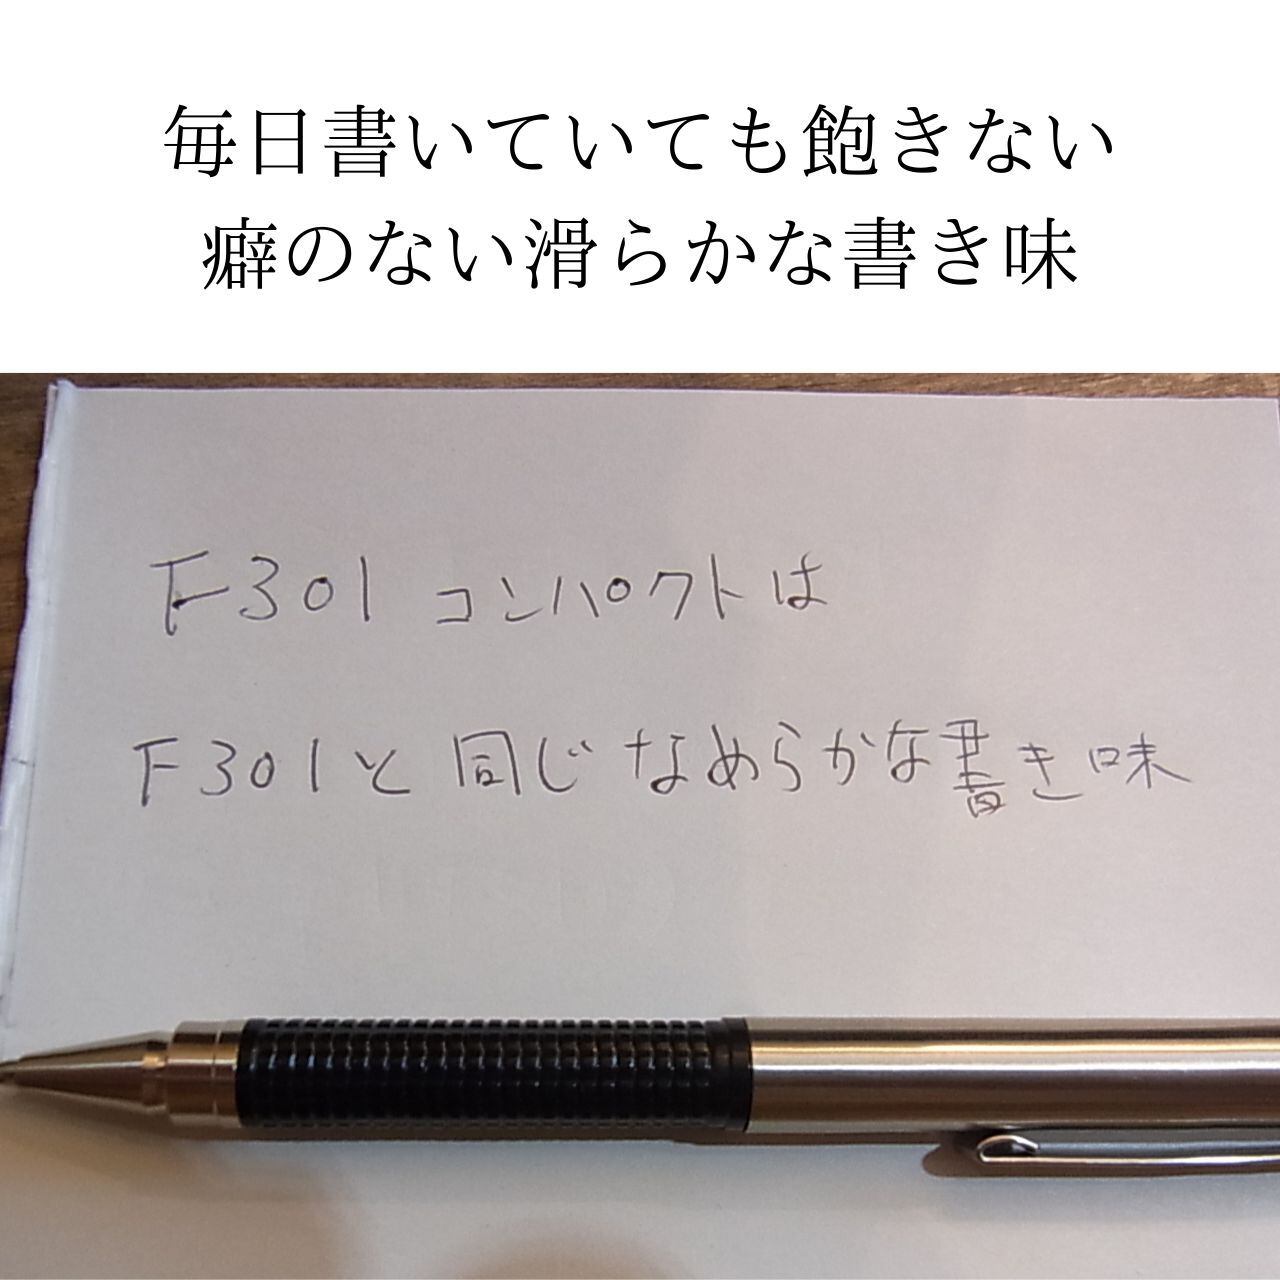 毎日書いていても飽きない
癖のない滑らかな書き味
F301 コンパクトは
F301と同じなめらかな書き味